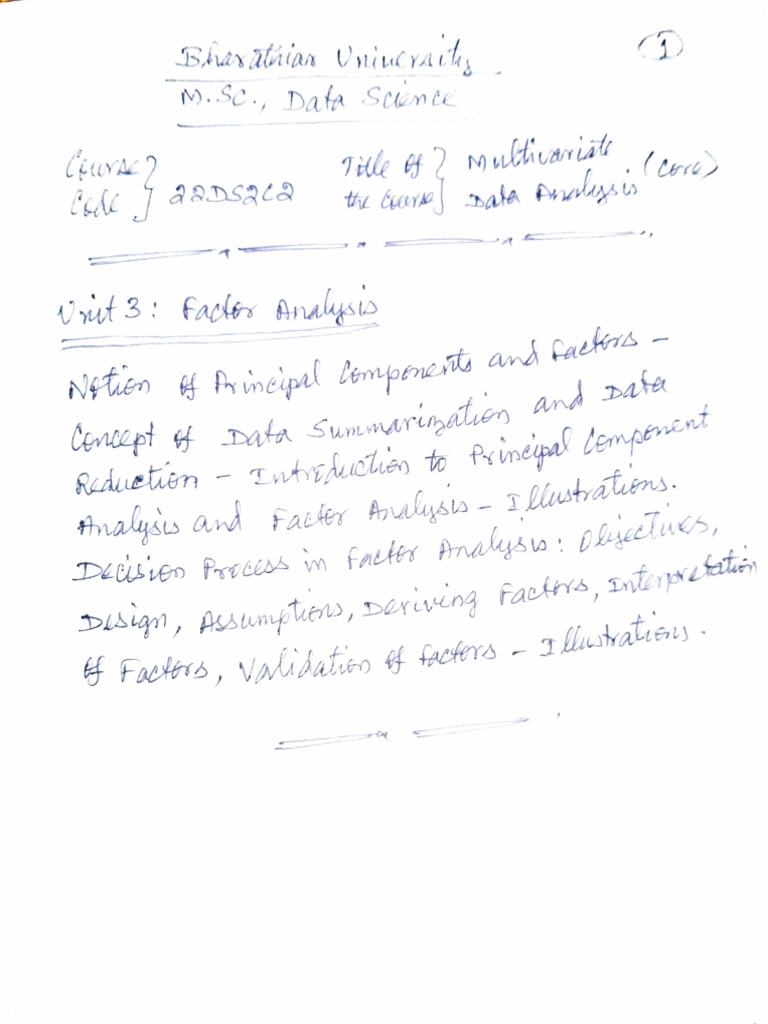 1
Bharathiar University
M.Sc., Data Science
Course Code } 22DS2C2 Title of the Course } Multivariate Data Analysis (Core)
Unit 3: Factor Analysis
Notion of Principal Components and Factors –
Concept of Data Summarization and Data
Reduction – Introduction to Principal Component
Analysis and Factor Analysis – Illustrations.
Decision Process in Factor Analysis: Objectives,
Design, Assumptions, Deriving Factors, Interpretation
of Factors, Validation of factors – Illustrations.